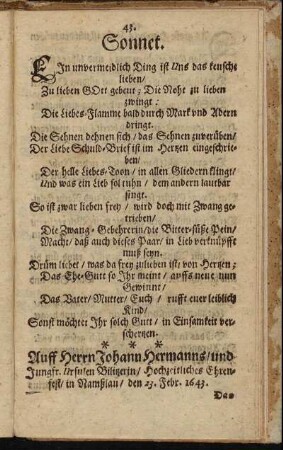 43.
Sonnet.
EIn unvermeidlich Ding ist Uns das keusche
lieben/
Zu lieben GOtt gebeut; Die Noht zu lieben
zwingt:
Die Liebes-Flamme bald durch Marck und Adern
dringt.
Die Sehnen dehnen sich/ das Sehnen zuverüben/
Der Liebe Schuld-Brief ist im Hertzen eingeschrie-
ben/
Der helle Liebes-Toon/ in allen Gliedern klingt/
Und was ein Lieb sol ruhn/ dem andern lautbar
singt.
So ist zwar lieben frey/ wird doch mit Zwang ge-
trieben/
Die Zwang-Gebehrerin/ die Bitter-süße Pein/
Macht/ daß auch dieses Paar/ in Lieb verknüpfft
muß seyn.
Drüm liebet/ was da frey zulieben ist/ von Hertzen;
Das Ehe-Gutt so Ihr meint/ auffs neue nun
Gewinnt/
Das Vater/ Mutter/ Euch/ rufft ener leiblich
Kind/
Sonst möchtet Ihr solch Gutt/ in Einsamkeit ver-
schertzen.
* * *
Auff Herrn Johann Hermanns/ und
Jungfr. Ursulen Bilitzerin/ Hochzeitliches Ehren-
fest/ in Namßlau/ den 23. Febr. 1643.
Das